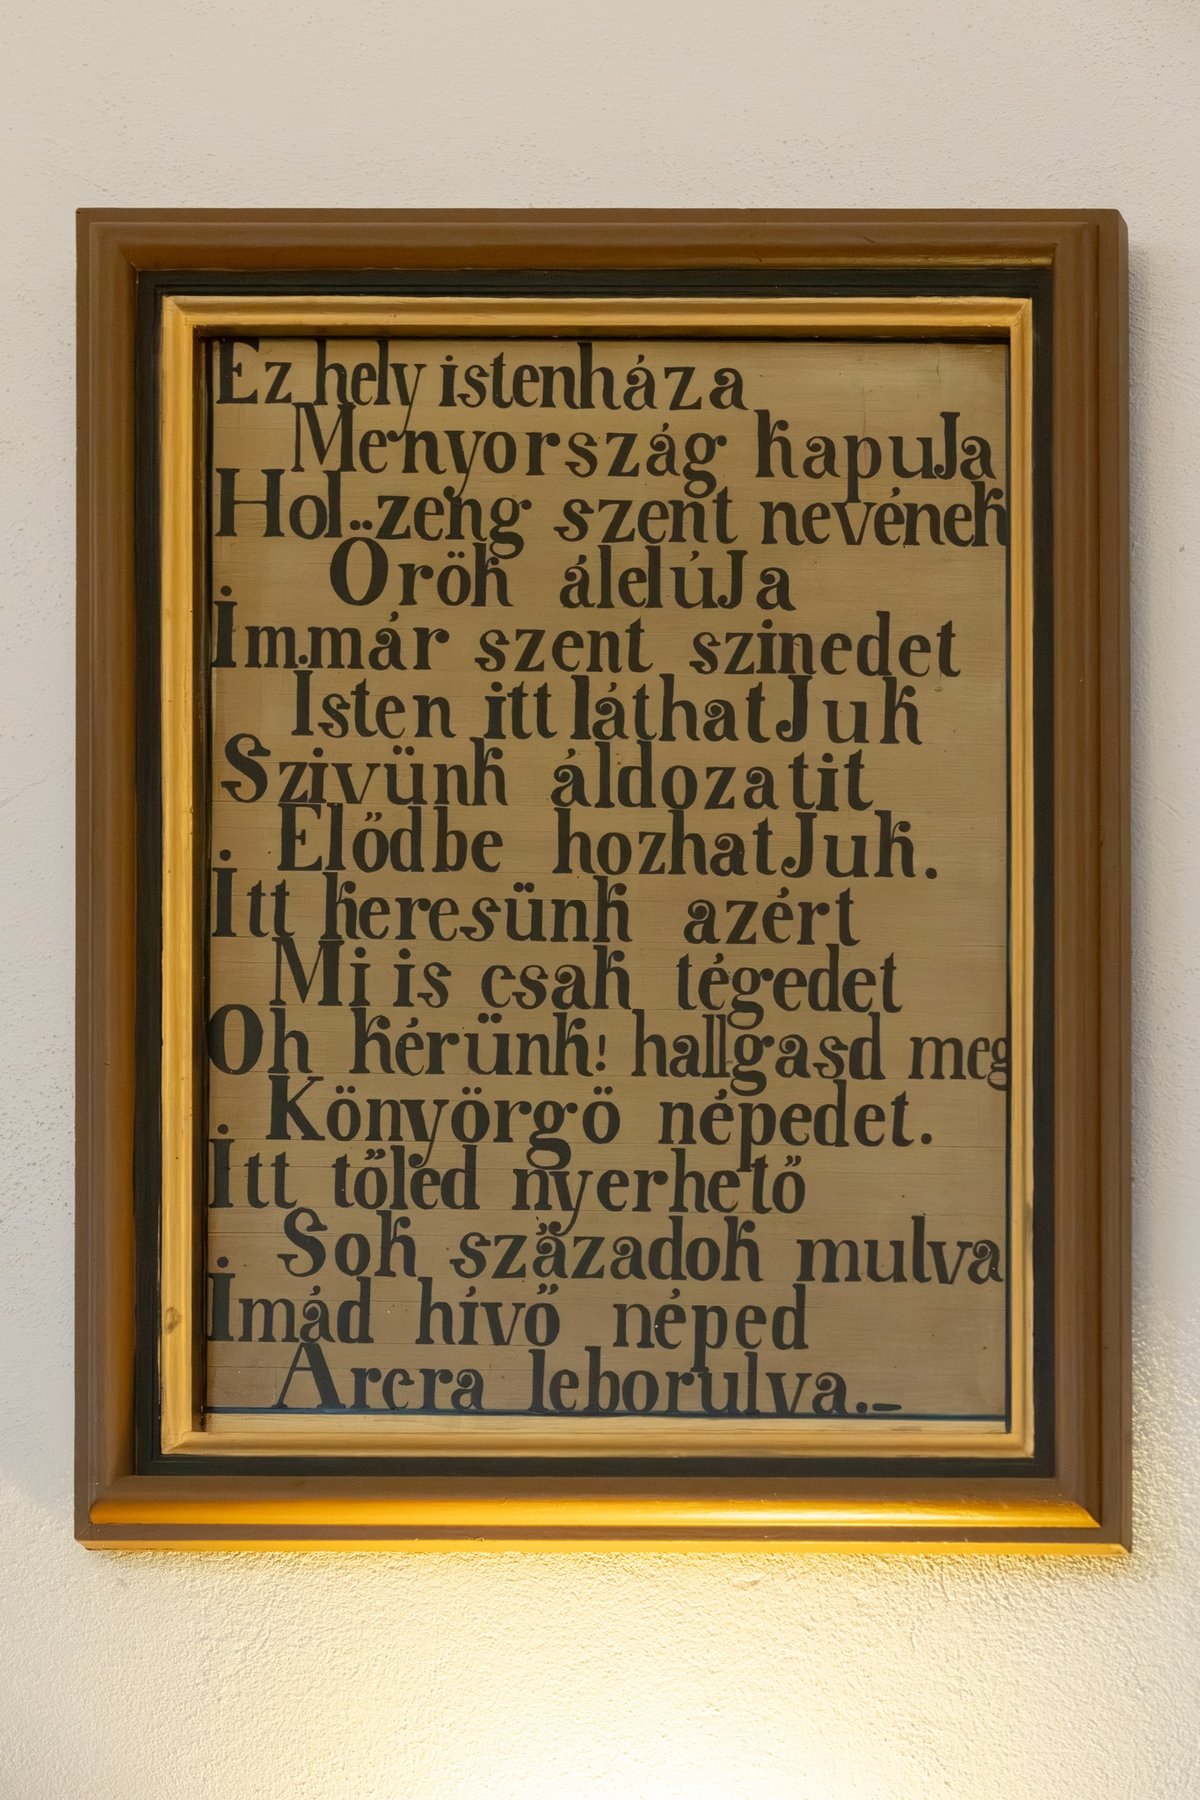 Ez hely istenháza
Menyország kapuja
Hol zeng szent nevének
Örök álelúja
Immár szent szinedet
Isten itt láthatjuk
Szivünk áldozatit
Elődbe hozhatjuk.
Itt keresünk azért
Mi is csak tégedet
Oh kérünk! hallgasd meg
Könyörgö népedet.
Itt tőled nyerhető
Sok századok mulva
Imád hívő néped
Arcra leborulva.-